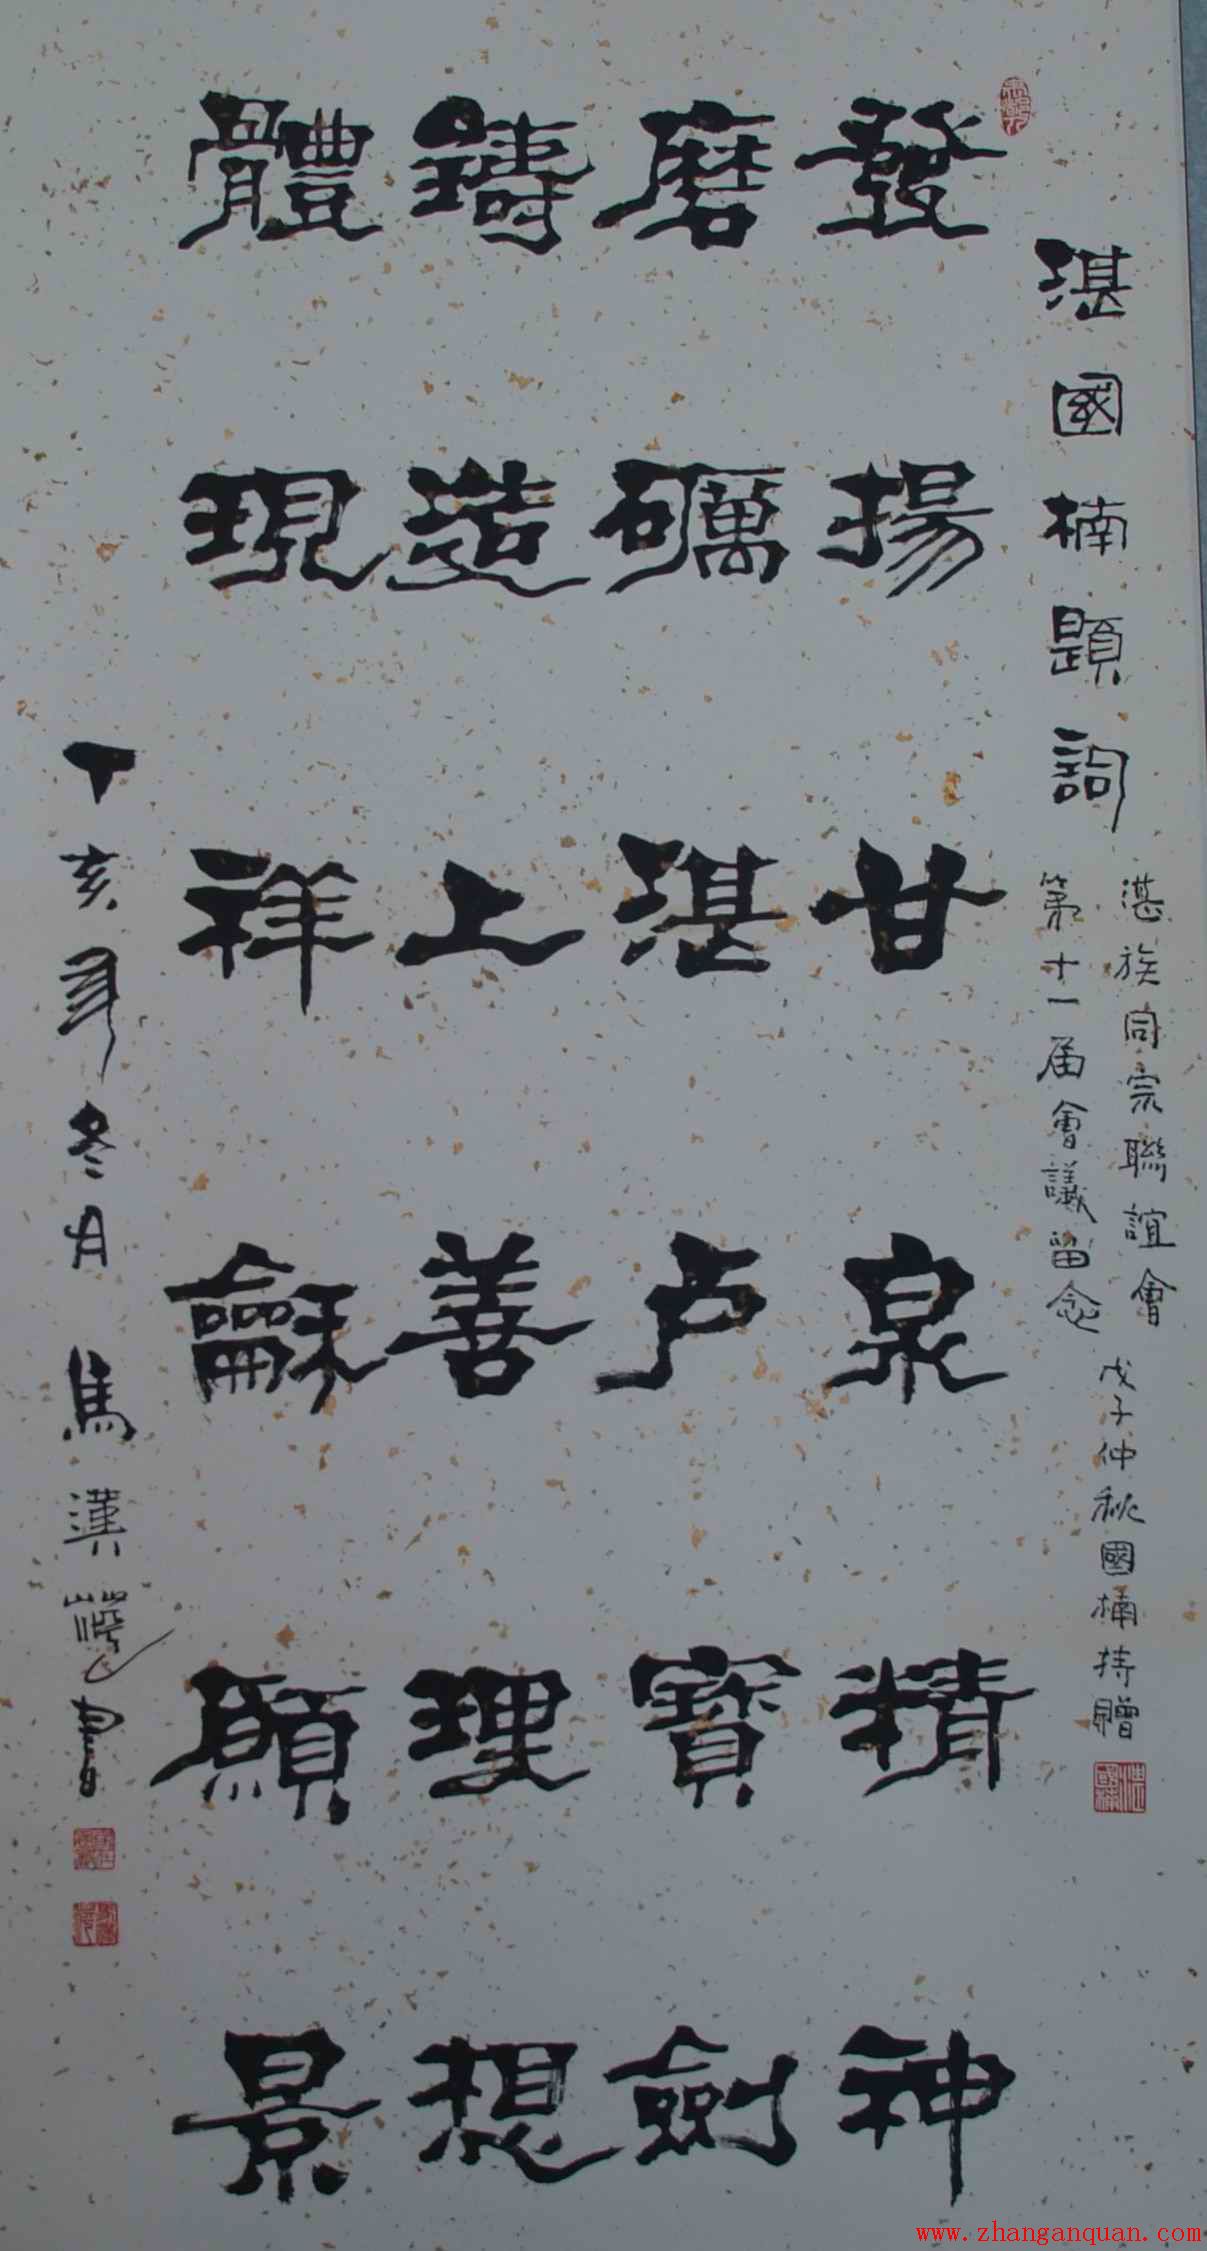 湛國楠題詞
湛族同宗聯誼會
第十一届會議留念
戊子仲秋國楠持贈
發揚甘泉精神
磨礪湛卢寶劍
鑄造上善理想
體現祥龢願景
丁亥年冬月 馬漢 書
www.zhanganquan.com